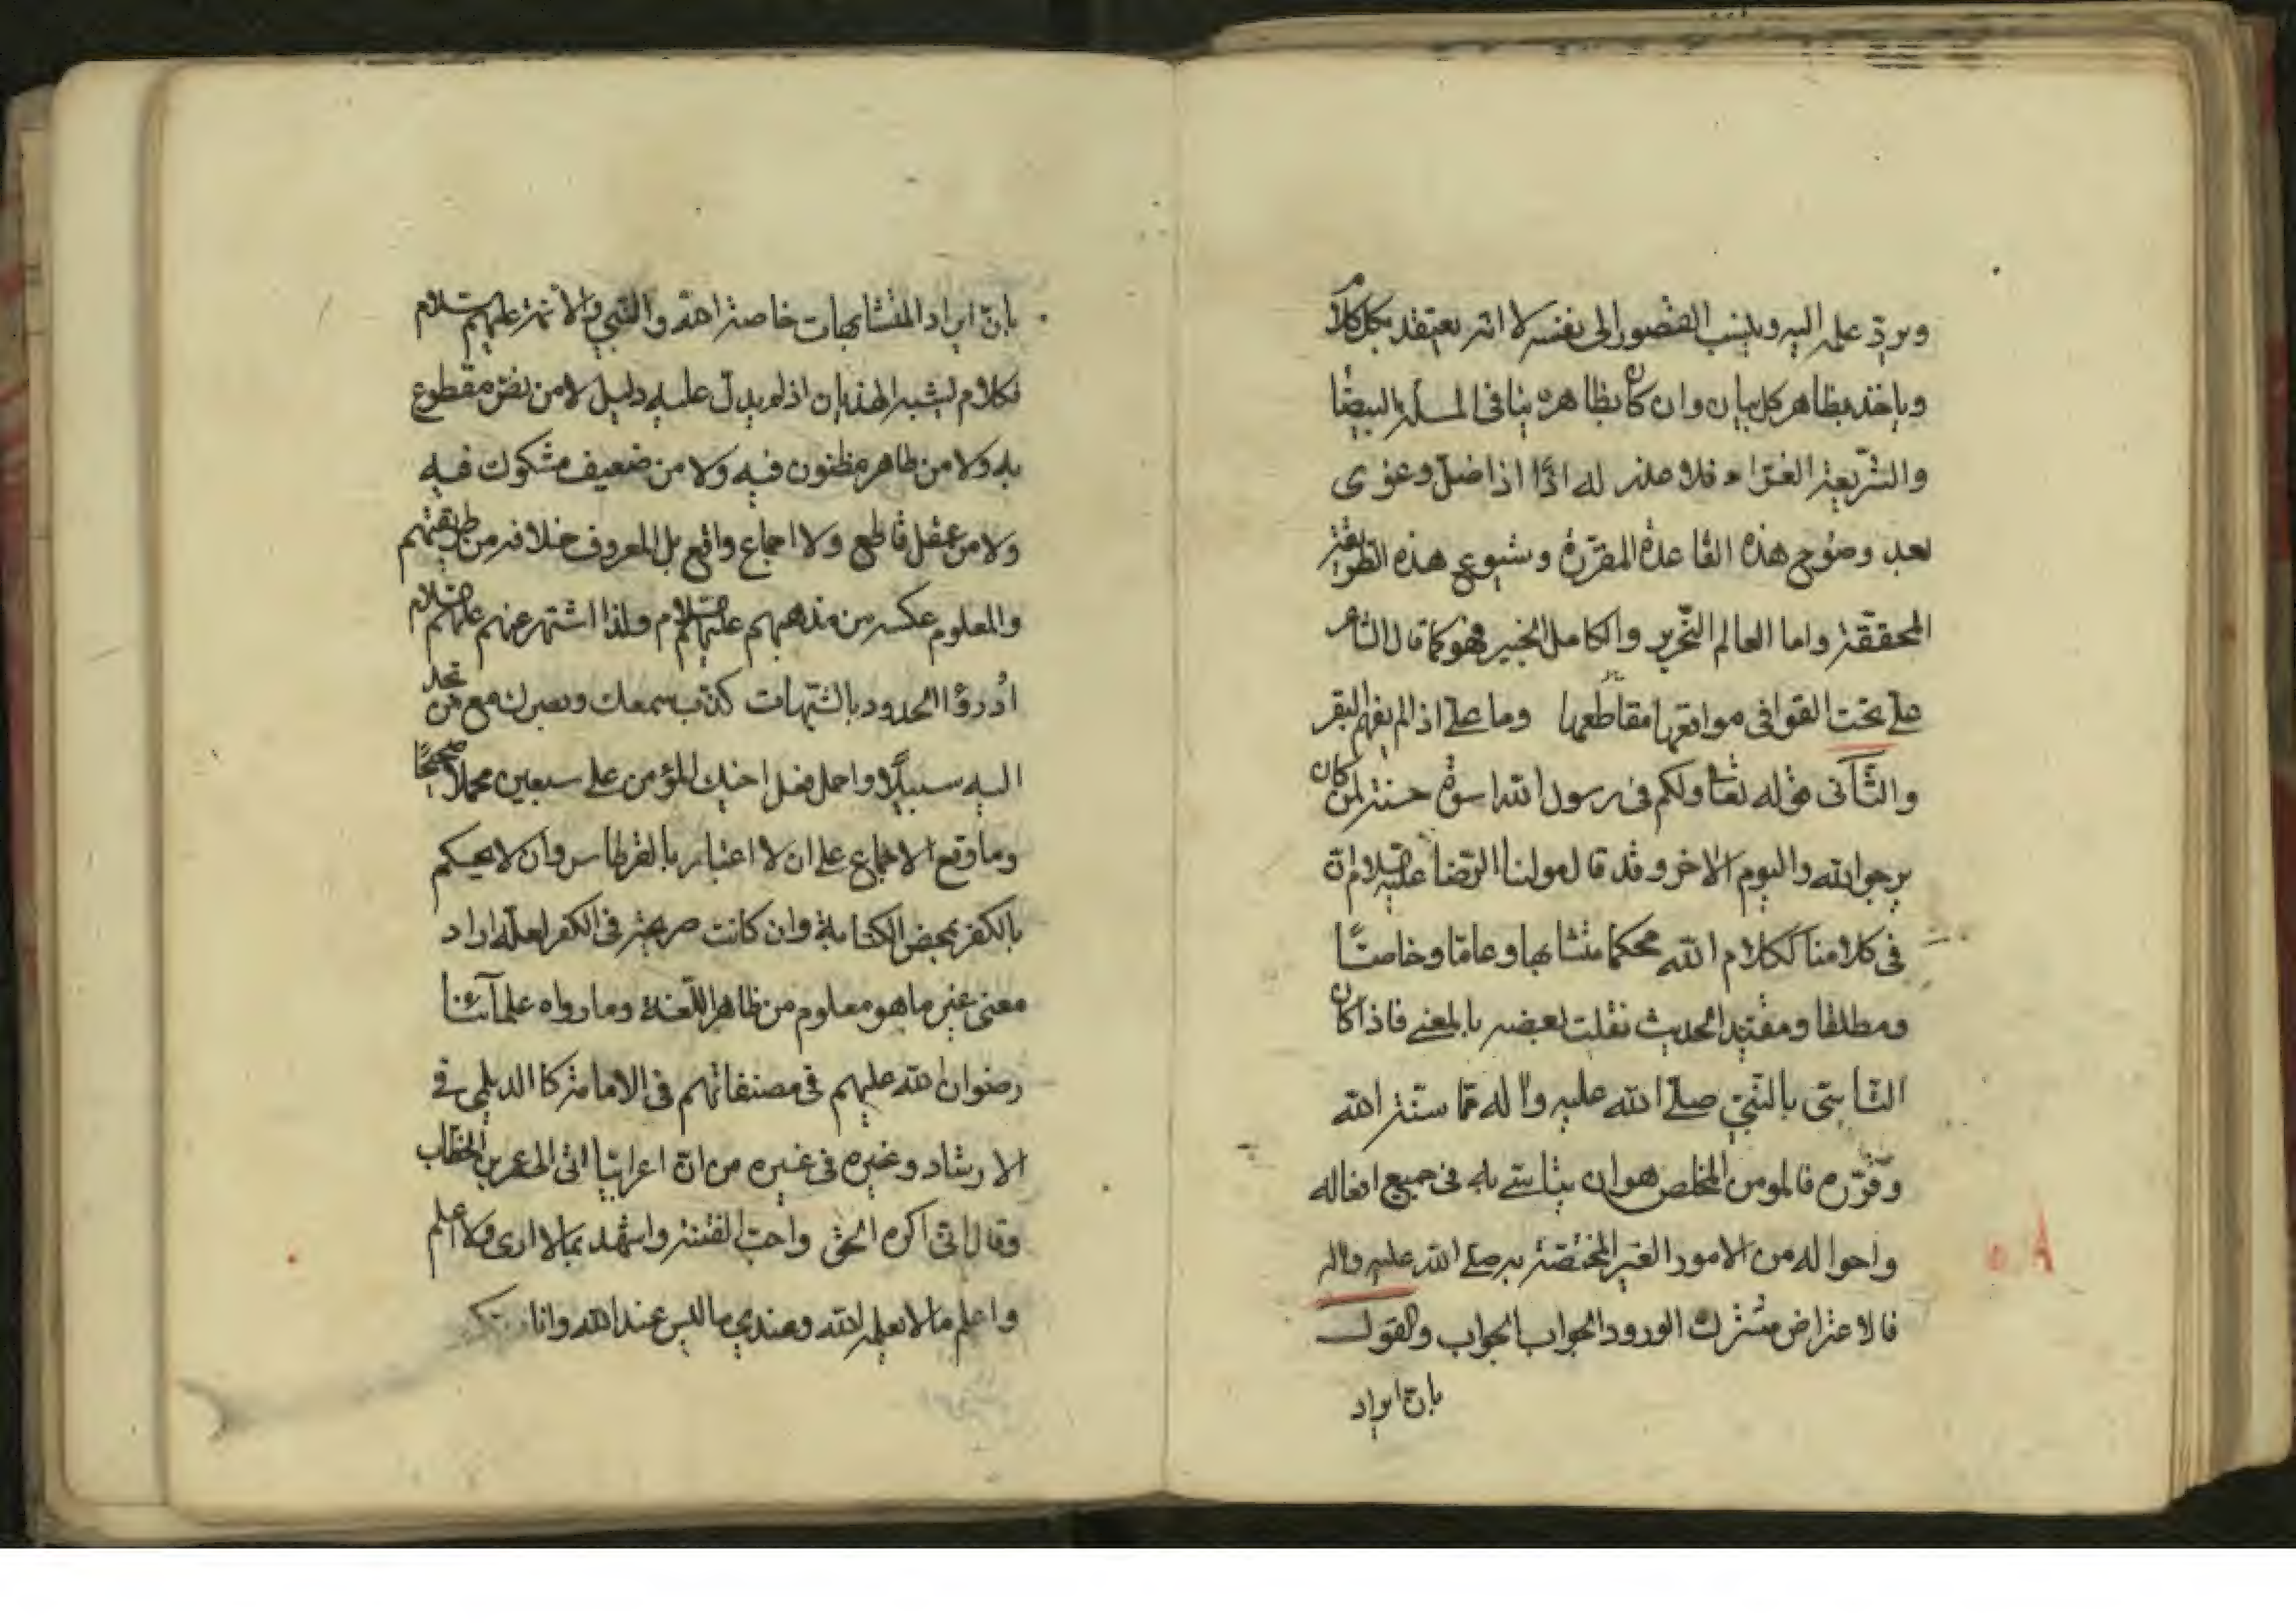 ويردّ علمه اليه وينسب القصور الى نفسه لا انه يعتقد بكل كلام
وياخذ بظاهر كل بيان وان كان بظاهره ينافى الملة البيضا
والشريعة الغراء فلا عذر له اذًا اذا ضلّ وغوى
بعد وضوح هذه القاعدة المقررة وشيوع هذه الطريقة
المحققة واما العالم النحرير والكامل الخبير فهو كما قال الشاعر
علىّ نحت القوافى من مواقعها مقاطعها وما علىّ اذا لم يفهم البقر
والثانى قوله تعا ولكم فى رسول الله اسوة حسنة لمن كان
يرجوا الله واليوم الاخر وقد قال مولنا الرّضا عليه السلام انّ
فى كلامنا ككلام الله محكما متشابها وعاما وخاصًا
ومطلقا ومقيّد الحديث نقلت بعضه بالمعنى فاذا كان
التاسّى بالنبىّ صلى الله عليه واله مما سنّه الله
وقرّره فالمومن المخلص هو ان يتاسّى به فى جميع افعاله
واحواله من الامور الغير المختصة به صلى الله عليه واله
فالاعتراض مشترك الورود الجواب الجواب والقول
بانّ ايراد
بانّ ايراد المتشابهات خاصة الله والنبى والائمة عليهم السلام
فكلام يشبه الهذيان اذ لم يدلّ عليه دليل لا من نصّ مقطوع
به ولا من ظاهر مظنون فيه ولا من ضعيف مشكوك فيه
ولا من عقل قاطع ولا اجماع واقع بل المعروف خلافه من طريقتهم
والمعلوم عكسه من مذهبهم عليهم السلام ولذا اشتهر عنهم عليهم السلام
ادرؤا الحدود بالشبهات كذّب سمعك وبصرك مع من تجد
اليه سبيلًا واحمل فعل اخيك المؤمن على سبعين محملًا صحيحًا
وما وقع الاجماع على ان لا اعتبار بالقرطاس وان لا يحكم
بالكفر بمحض الكتابة وان كانت صريحة فى الكفر لعلّه اراد
معنى غير ما هو معلوم من ظاهر اللّغة وما رواه علمآئنا
رضوان الله عليهم فى مصنفاتهم فى الامامة كالديلمى فى
الارشاد وغيره فى غيره من انّ اعرابيّا اتى الى عمر بن الخطاب
وقال انّى اكره الحق واحبّ الفتنة واشهد بما لا ارى ولا اعلم
واعلم ما لا يعلمه الله وعندي ما ليس عند الله وانا